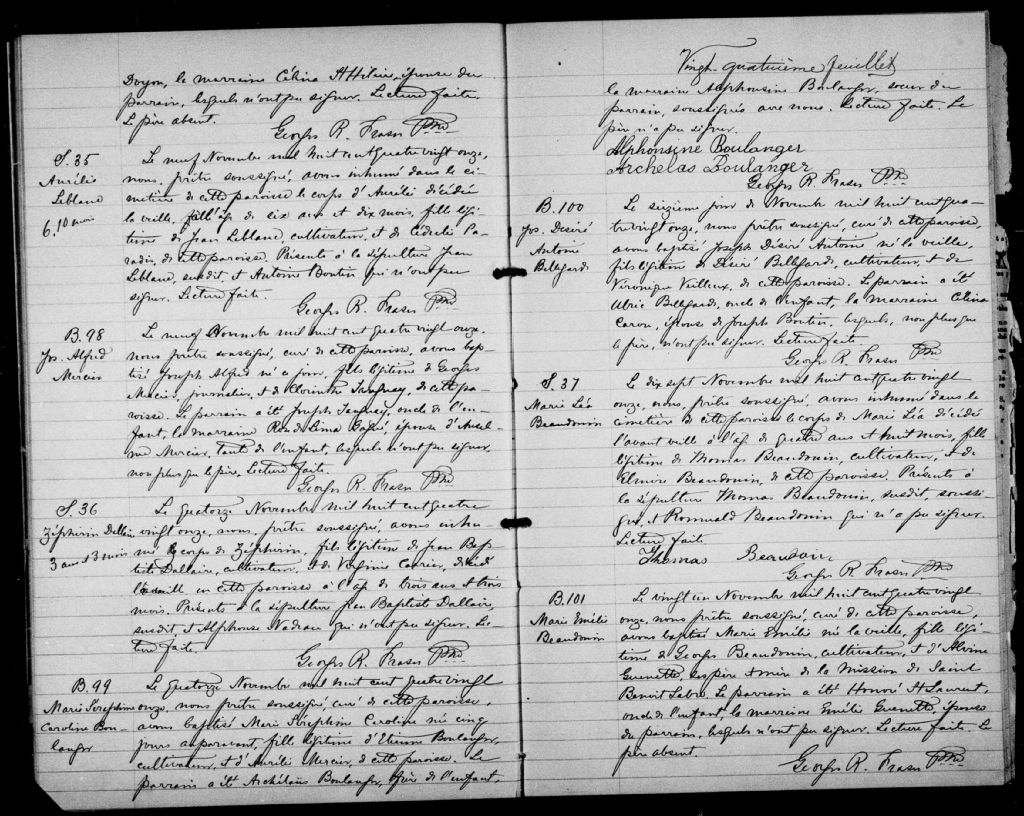 Doyon, la marraine Célina St Hilaire, épouse du
parrain, lesquels n'ont pu signer. Lecture faite.
Le père absent.
Georges R. Fraser Ptre
S. 35
Aurélie
Leblanc
6.10 mois
Le neuf Novembre mil huit cent quatre vingt onze,
nous, prêtre soussigné, avons inhumé dans le ci-
metière de cette paroisse le corps d'Aurélie décédée
la veille, à l'âge de six ans et dix mois, fille légi-
time de Jean Leblanc cultivateur, et de Cédulie Pa-
radis, de cette paroisse. Présents à la sépulture Jean
Leblanc, susdit, et Antoine Boutin qui n'ont pu
signer. Lecture faite.
Georges R. Fraser Ptre
B. 98
Jos. Alfred
Mercier
Le neuf Novembre mil huit cent quatre vingt onze,
nous prêtre soussigné, curé de cette paroisse, avons bap-
tisé Joseph Alfred né ce jour, fils légitime de Georges
Mercier, journalier, et de Clorinthe Tanguay, de cette pa-
roisse. Le parrain a été Joseph Tanguay, oncle de l'en-
fant, la marraine Rose de Lima Gagné, épouse d'Ansel-
me Mercier, tante de l'enfant, lesquels n'ont pu signer
non plus que le père. Lecture faite.
Georges R. Fraser Ptre
S. 36
Zéphirin Dallaire
3 ans et 3 mois
Le quatorze Novembre mil huit cent quatre
vingt onze, nous, prêtre soussigné avons inhu-
mé le corps de Zéphirin, fils légitime de Jean Bap-
tiste Dallaire, cultivateur, et de Virginie Carrier, décédé
la veille en cette paroisse à l'âge de trois ans et trois
mois. Présents à la sépulture Jean Baptiste Dallaire,
susdit, et Alphonse Nadeau qui n'ont pu signer. Lec-
ture faite.
Georges R. Fraser Ptre
B. 99
Marie Séraphine
Caroline Bou-
langer
Le quatorze Novembre mil huit cent quatre vingt
onze, nous, prêtre soussigné, curé de cette paroisse,
avons baptisé Marie Séraphine Caroline née cinq
jours auparavant, fille légitime d'Etienne Boulanger,
cultivateur, et d'Aurélie Mercier, de cette paroisse. Le
parrain a été Archélaüs Boulanger, frère de l'enfant,
Vingt-quatrième feuillet
la marraine Alphonsine Boulanger, soeur du
parrain, soussignés avec nous. Lecture faite. Le
père n'a pu signer.
Alphonsine Boulanger
Archelas Boulanger
Georges R. Fraser Ptre
B. 100
Jos. Désiré
Antoine
Bellegarde
Le seizième jour de Novembre mil huit cent qua-
tre vingt onze, nous prêtre soussigné, curé de cette paroisse,
avons baptisé Joseph Désiré Antoine né la veille,
fils légitime de Désiré Bellegarde, cultivateur, et de
Véronique Veilleux, de cette paroisse. Le parrain a été
Ulric Bellegarde, oncle de l'enfant, la marraine Célina
Caron, épouse de Joseph Boutin, lesquels, non plus que
le père, n'ont pu signer. Lecture faite.
Georges R. Fraser Ptre
S. 37
Marie Léa
Beaudouin
Le dix sept Novembre mil huit cent quatre vingt
onze, nous, prêtre soussigné, avons inhumé dans le
cimetière de cette paroisse le corps de Marie Léa décédée
l'avant veille à l'âge de quatre ans et huit mois, fille
légitime de Thomas Beaudouin, cultivateur, et de
Elmire Beaudouin, de cette paroisse. Présents à
la sépulture Thomas Beaudouin, susdit, soussi-
gné, et Romuald Beaudouin qui n'a pu signer.
Lecture faite.
Thomas
Georges R. Fraser Ptre
B. 101
Marie Emélie
Beaudouin
Le vingt un Novembre mil huit cent quatre vingt
onze, nous prêtre soussigné, curé de cette paroisse,
avons baptisé Marie Emélie née la veille, fille légi-
time de Georges Beaudouin, cultivateur, et d'Alvine
Guenette, ses père et mère de la mission de Saint
Benoit Labre. Le parrain a été Honoré St Laurent,
oncle de l'enfant, la marraine Emélie Guenette, épouse
du parrain, lesquels n'ont pu signer. Lecture faite. Le
père absent.
Georges R. Fraser Ptre